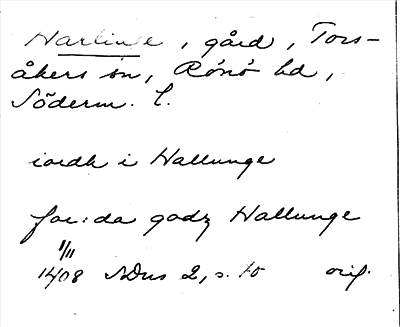 Harlinge, gård, Tors-
åkers sn, Rönö hd,
Söderm. l.
iordh i Hallunge
for:da godz Hallunge
1/11
1408 SDns 2, s. 10 orig.